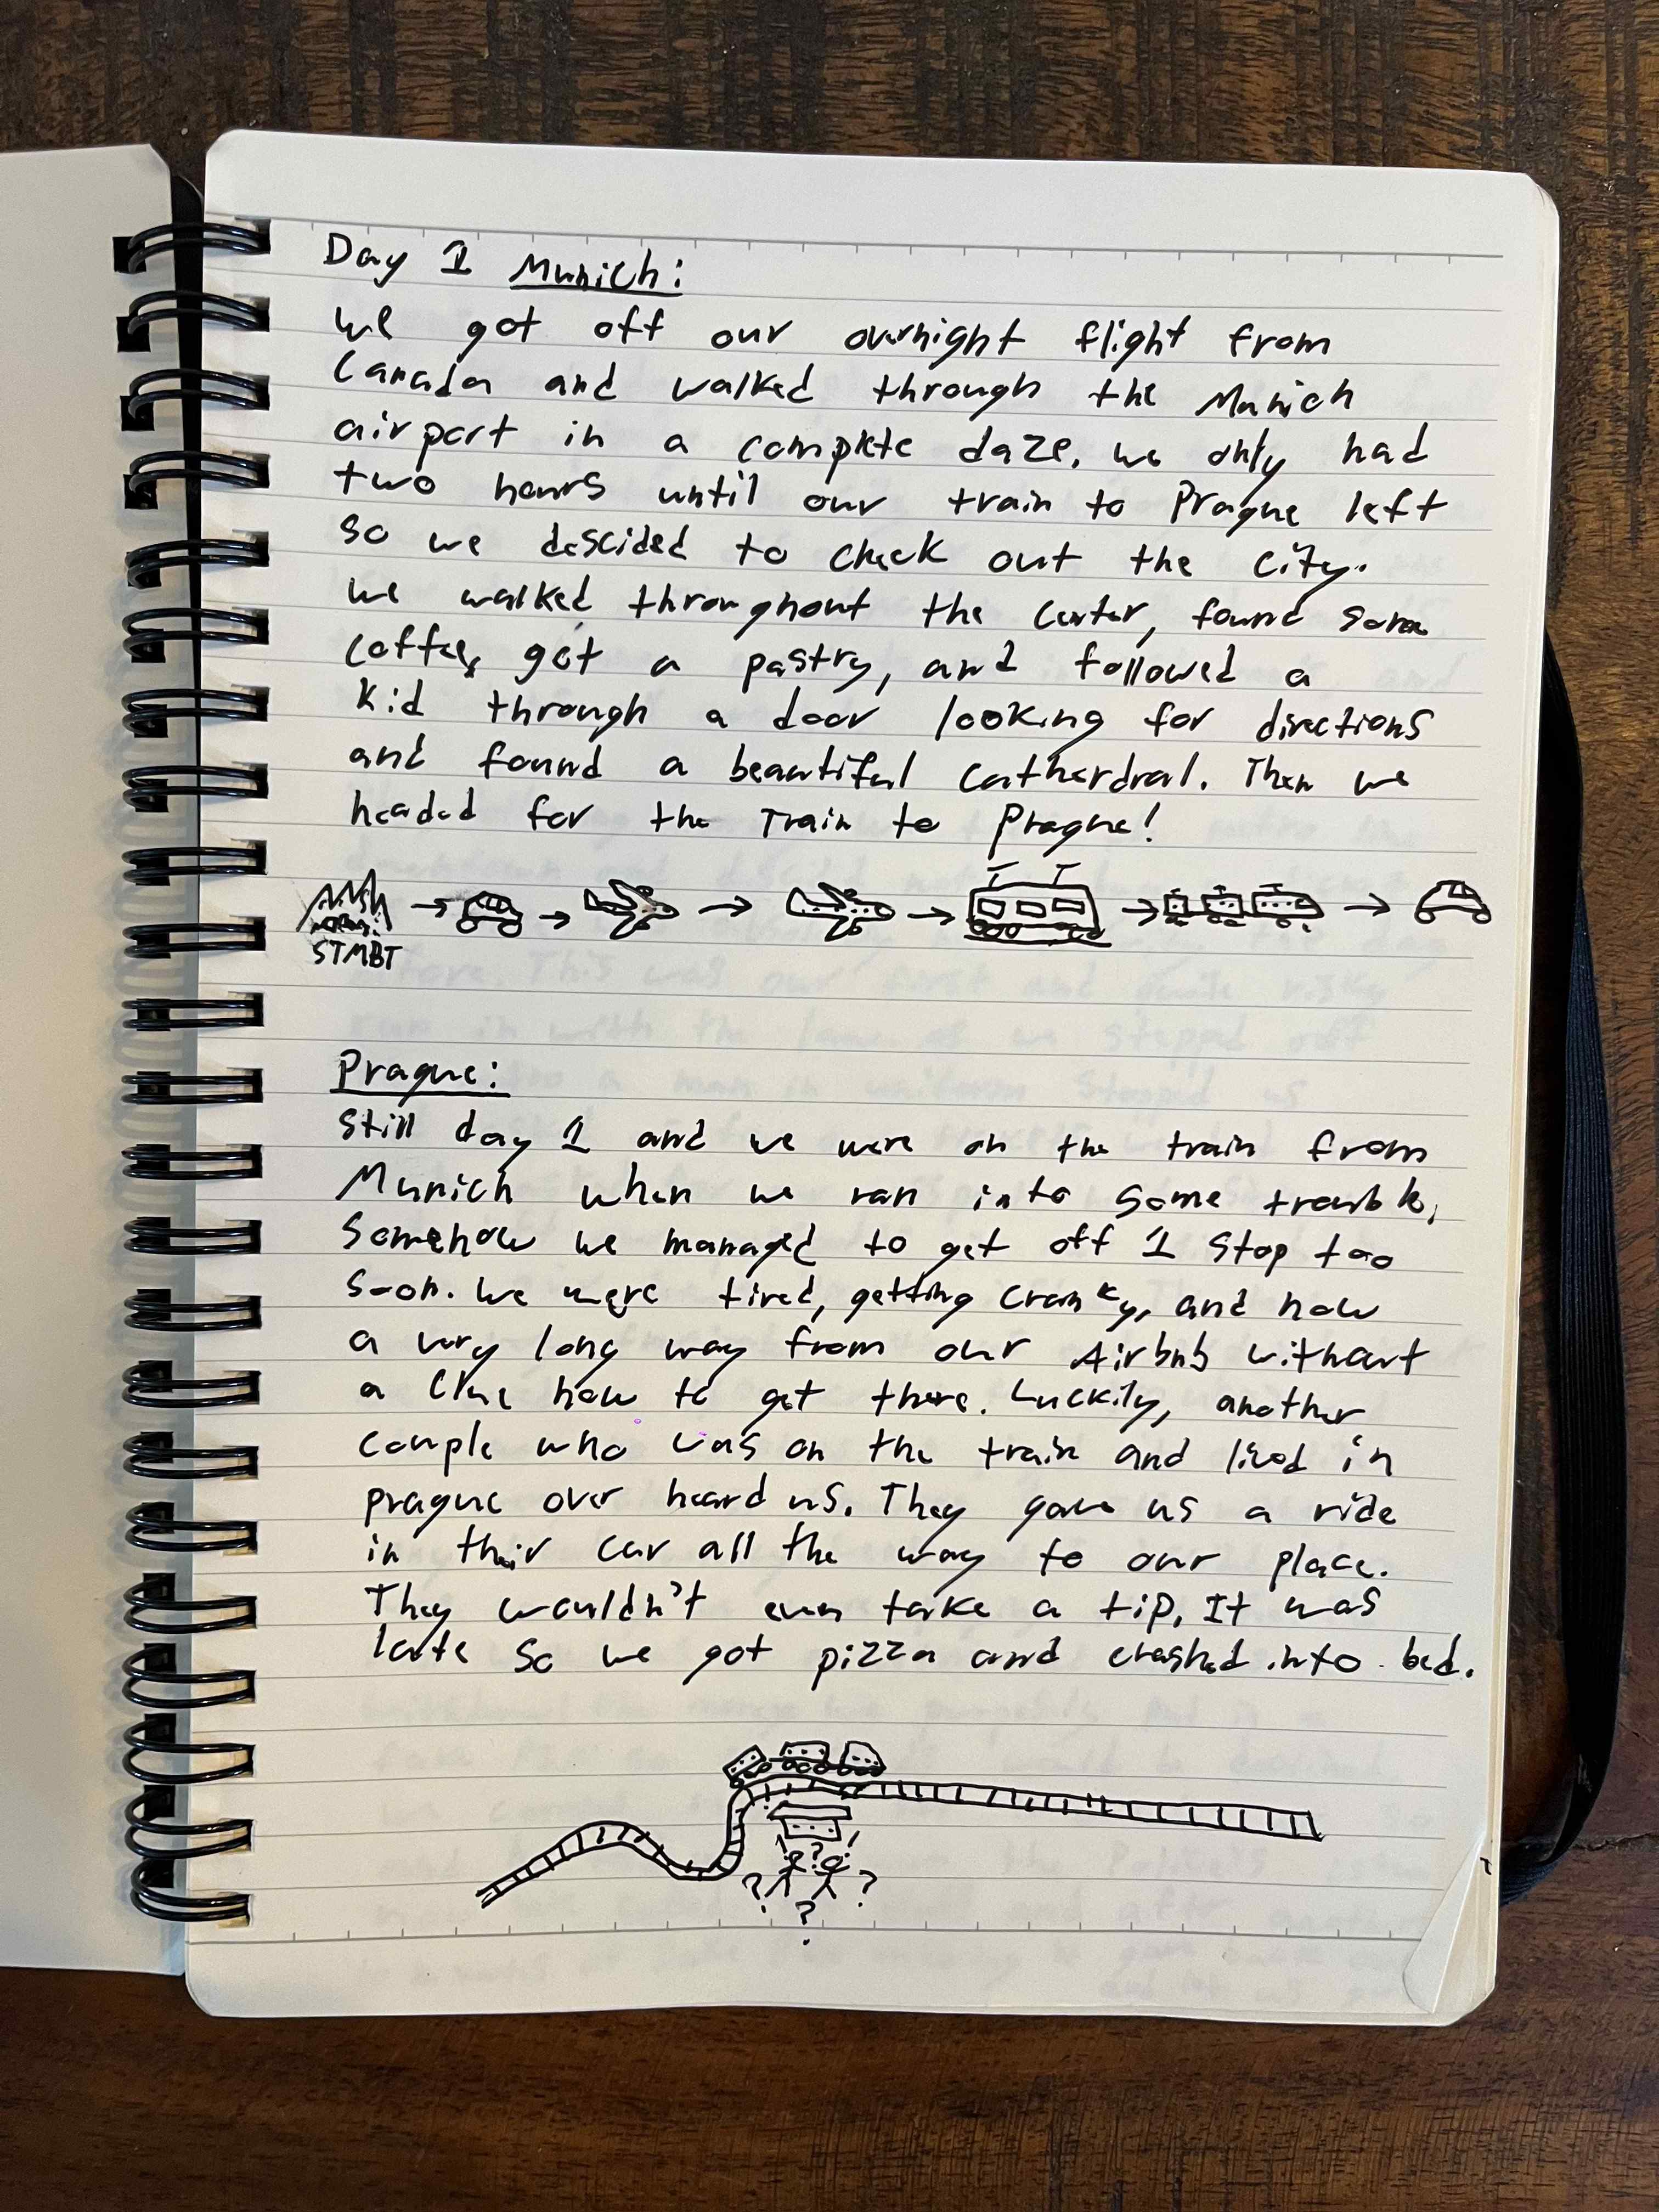 Day 1 Munich:
We got off our overnight flight from
Canada and walked through the Munich
airport in a complete daze. We only had
two hours until our train to Prague left
so we descided to check out the city.
We walked throughout the center, found some
coffee, got a pastry, and followed a
kid through a door looking for directions
and found a beautiful catherdral. Then we
headed for the Train to Prague!
START
Prague:
Still day 1 and we were on the train from
Munich when we ran into some trouble,
Somehow we managed to get off 1 stop too
soon. We were tired, getting cranky, and now
a very long way from our Airbnb without
a clue how to get there. Luckily, another
couple who was on the train and lived in
prague over heard us. They gave us a ride
in their car all the way to our place.
They wouldn't even take a tip. It was
late so we got pizza and crashed into bed.
! ? !
? ?
?